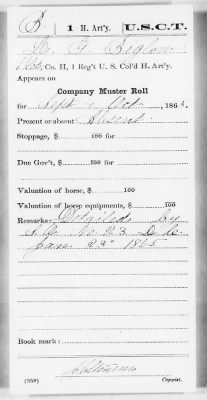 B | 1 H. Art'y. | U.S.C.T.
G. Bigelow
Co. H, 1 Reg't U. S. Col'd H. Art'y.
Appears on
Company Muster Roll
for Sept & Oct, 1865.
Present or absent Absent
Stoppage, $ 100 for
Due Gov't, $ 100 for
Valuation of horse, $ 100
Valuation of horse equipments, $ 100
Remarks: Detailed by
S.O. No 23 D.
Jan 23d 1865
Book mark:
(358) Copyist.